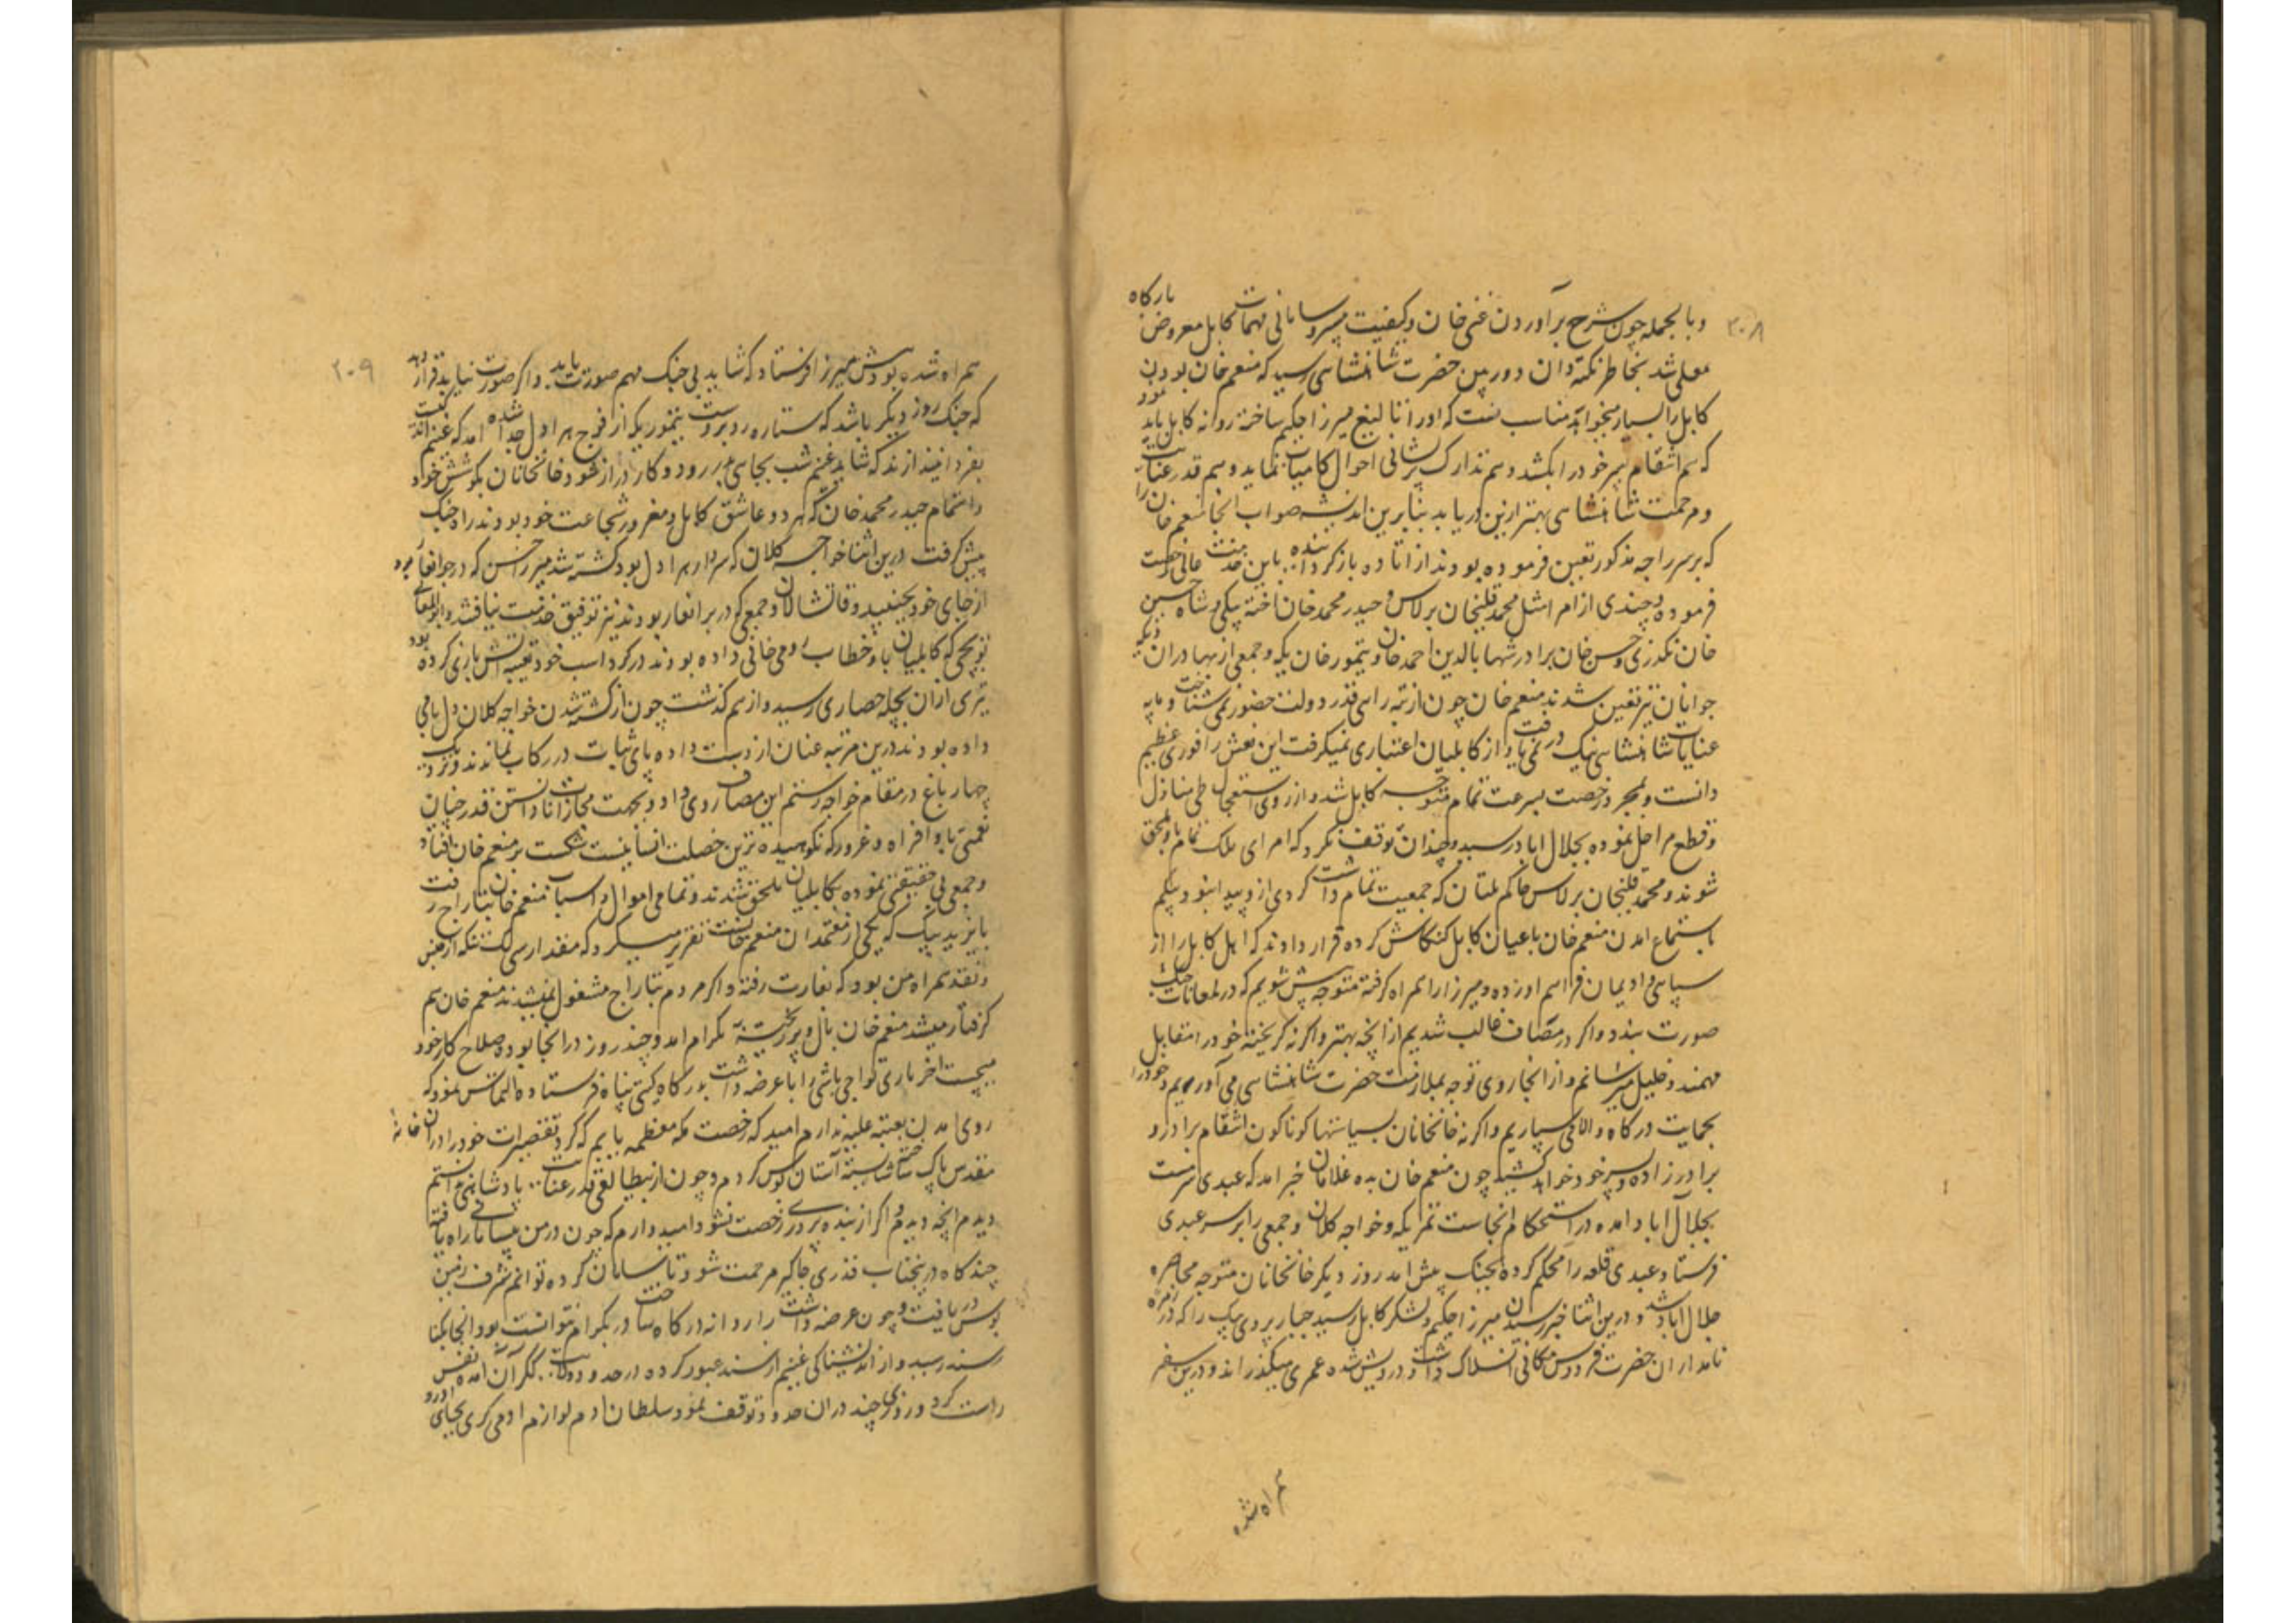 ۳۰۸
وبالجمله چون شرح برآوردن غنی خان و کیفیت بیسروسامانی مهمات کابل معروض بارگاه
معلی شد بخاطر نکته دان دوربین حضرت شاهنشاهی رسید که منعم خان بودن
کابل را بسیار میخواهد مناسب نست که او را اتالیغ میرزا حکیم ساخته روانه کابل باید نمود
که هم انتقام پسر خود را بکشد و هم تدارک پرشانی احوال کابلیان نماید و هم قدر عنایت
و مرحمت شاهنشاهی بهتر ازین دریابد بنابرین اندیشه صواب انجا منعم خان را
که برسر راجه مذکور تعین فرموده بودند از اتاوه بازگردانیده باین خدمت عالی رخصت
فرموده و چندی از امرا مثل محمد قلیخان برلاس و حیدر محمد خان اخته بیکی و شاه حسین
خان نکدری و حسن خان برادر شهاب الدین احمد خان و تیمور خان یکه و جمعی از بهادران و یکه
جوانان نیز تعین شدند منعم خان چون از تیره رایی قدر دولت حضور نمی شناخت و پایه
عنایات شاهنشاهی نیک در نمی یافت و از کابلیان اعتباری نمیگرفت این یعنی را فوزی عظیم
دانست و بمجرد رخصت بسرعت تمام متوجه کابل شد و از روی استعجال طی منازل
و قطع مراحل نموده بجلال اباد رسید و چندان توقف نکرد که امرای ملک تمام باو ملحق
شوند و محمد قلیخان برلاس حاکم ملتان که جمعیت تمام داشت گردی ازو پیدا نبود و بیکم
باستماع امدن منعم خان باعیان کابل کنکاش کرده قرار دادند که اهل کابل را از
سپاهی و اویماق فراهم اورده و میرزا را همراه گرفته متوجه پیش شویم که در لمغانات جنگ
صورت بندد و اگر در مصاف غالب شدیم ازانچه بهتر و اگر نه گریخته خود را مقابل
مهمند و خلیل میرسانم و از انجا روی توجه بملازمت حضرت شاهنشاهی می آوریم و خود را
بحمایت درگاه والا می سپاریم و اگر نه خانخانان بسیاستها گوناگون انتقام برادر و
برادرزاده و پسر خود خواهد کشید چون منعم خان بده غلامان خبر امد که عبدی سرمست
بجلال آباد امده در استحکام انجاست تمر یکه و خواجه کلان و جمعی را برسر عبدی
فرستاد عبدی قلعه را محکم کرده بجنگ پیش امد روز دیگر خانخانان متوجه محاصره
جلال اباد شد و درین اثنا خبر رسیدن میرزا حکیم و لشکر کابل رسید جبار بردی بیک را که در زمره
نامداران حضرت فردوس مکانی انسلاک داشت و درویش شده عمری میگذراند و درین سفر
همراه شده
۳۰۹
همراه شده بود پیش میرزا فرستاد که شاید بی جنگ مهم صورت یابد و اگر صورت نیابد قرار دهد
که جنگ روز دیگر باشد که ستاره روبروست تیمور یکه از فوج هراول جدا شده امد که غنیم اندک
بفردا نیندازند که شاید غنیم شب بجای بدر رود و کار دراز شود خانخانان بکوشش خود
و اهتمام حیدر محمد خان که هر دو عاشق کابل و مغرور شجاعت خود بودند راه جنگ
پیش گرفت درین اثنا خواجه کلان که سردار هراول بود کشته شد میرزا حسن که در جوانغار بود
از جای خود نجنبید و قاقشالان و جمعی که در برانغار بودند نیز توفیق خدمت نیافتند و ابوالمعالی
توپچی که کابلیان باو خطاب رومی خانی داده بودند در گرد اسب خود تعبیه اتش بازی کرده بود
تیری ازان بچله حصاری رسید و از هم گذشت چون از کشته شدن خواجه کلان دل بای
داده بودند درین مرتبه عنان از دست داده پای ثبات در رکاب نماندند و نزدیک
چهار باغ در مقام خواجه رستم این مصاف روی داد و بجهت مجازات نادانستن قدر چنان
نعمتی یا وافراه و غرور که نکوهیده ترین خصلت انسانیست شکست بر منعم خان افتاد
و جمعی بی حقیقتی نموده بکابلیان ملحق شدند و تمامی اموال و اسباب منعم خان بتاراج رفت
بایزید بیک که یکی از معتمدان منعم خانست تقریر میکرد که مقدار سی لک تنکه از جنس
و نقد همراه من بود که بغارت رفته و اگر مردم بتاراج مشغول نمیشدند منعم خان هم
گرفتار میشد منعم خان بال و پر ریخته بگرام امد و چند روز در انجا بوده صلاح کار خود
میجست اخر یاری تواجی باشی را با عرضه داشت بدرگاه گیتی پناه فرستاده التماس نمود که
روی امدن بعتبه علیه ندارم امید که رخصت مکه معظمه یابم که گرد تقصیرات خود را دران خانه
مقدس پاک ساخته شایسته آستان بوس گردم و چون از بیطالعی قدر عنایت پادشاهی ندانستم
دیدم انچه دیدم و اگر از بنده پروری رخصت نشود امیدوارم که چون در من بیسامانی راه یافته
چند گاه در پنجاب قدری جاگیر مرحمت شود تا سامان کرده توانم شرف زمین
بوس دریافت و چون عرضه داشت را روانه درگاه ساخت و در بگرام نتوانست بود انجا بکنار
سند رسید و از اندیشناکی غنیم از سند عبور کرده در حدود ولایت ککران امده نفس
راست کرد و روزی چند دران حدود توقف نمود سلطان ادم لوازم ادمی گری بجای اورد